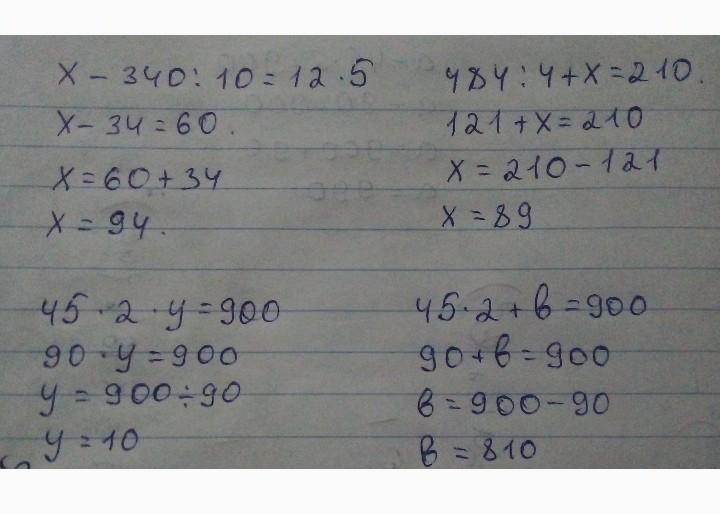 x - 340 : 10 = 12 · 5
x - 34 = 60.
x = 60 + 34
x = 94.
484 : 4 + x = 210.
121 + x = 210
x = 210 - 121
x = 89
45 · 2 · y = 900
90 · y = 900
y = 900 ÷ 90
y = 10
45 · 2 + в = 900
90 + в = 900
в = 900 - 90
в = 810